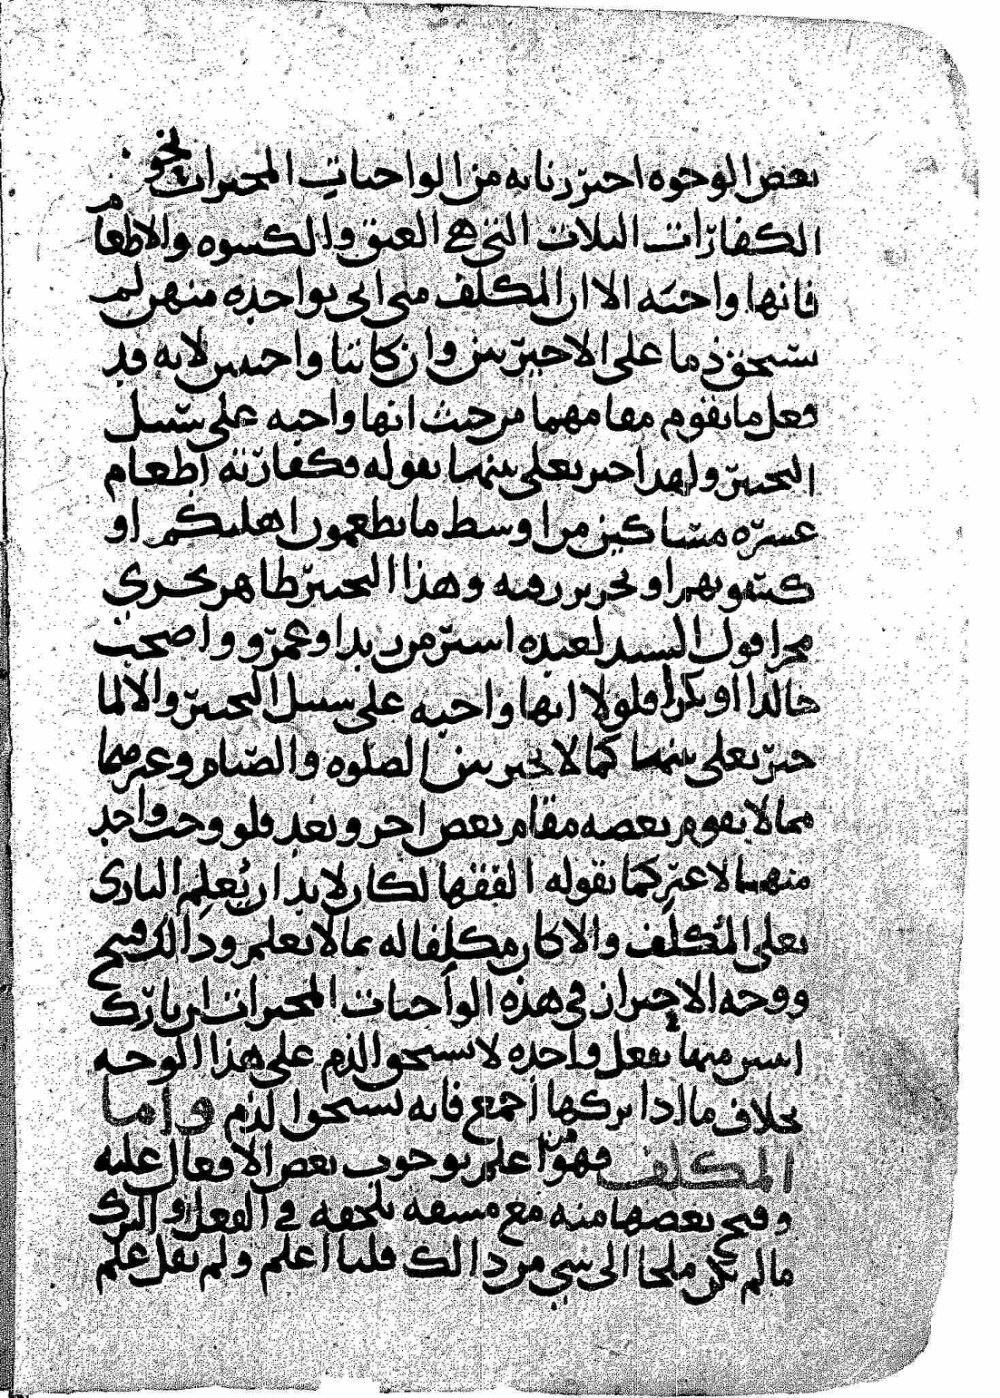 بعض الوجوه احترزنا به من الواجبات المخيرات نحو
الكفارات الثلاث التي هي العتق والكسوه والاطعام
فانها واجبه الا ان المكلف متى اتى بواحده منهن لم
يستحق ذما على الاخيرتين وان كانتا واجبتين لانه قد
فعل ما يقوم مقامهما من حيث انها واجبه على سبيل
التخيير ولهذا خير تعالى بينهما بقوله فكفارته اطعام
عشره مساكين من اوسط ما تطعمون اهليكم او
كسوتهم او تحرير رقبه وهذا التخيير ظاهر يجري
مجرا قول السيد لعبده استر من زيدا وعمرو واصحب
خالدا او بكرا فلولا انها واجبه على سبيل التخيير والا لما
خير تعلى بينهما كما لا يخير بين الصلوه والصيام وغيرهما
مما لا يقوم بعضه مقام بعض اخر وبعد فلو وجب واحد
منها لا غير كما يقوله الفقها لكان لابد ان يُعلِم البارى
تعلى المُكلَف والا كان مكلِفا له بما لا يعلم وذالك قبيح
ووجه الاحتراز في هذه الواجبات المخيرات ان تارك
اثنين منها بفعل واحده لا يستحق الذم على هذا الوجه
بخلاف ما اذا تركها اجمع فانه يستحق الذم واما
المكلف فهو من اعلم بوجوب بعض الافعال عليه
وقبح بعضها منه مع مشقه تلحقه في الفعل والترك
ما لم يكن ملجا الى شي من ذالك قلنا اعلم ولم نقل علم